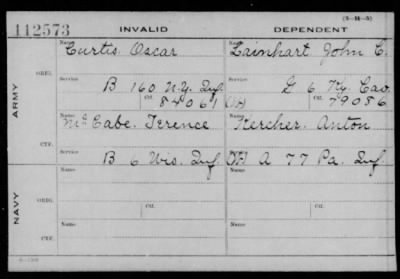 (3-M-5)
112573 INVALID DEPENDENT
Name Name
Curtis Oscar Lainhart John C.
ARMY
ORIG.
Service Service
B 160 N.Y. Inf. G 6 Ky. Cav.
Ctf. 84061 Ctf. 79086
Name Name
McCabe, Terence Kercher, Anton
CTF.
Service Service
B 6 Wis. Inf. A 77 Pa. Inf.
NAVY
Name Name
ORIG.
Ctf. Ctf.
Name Name
CTF.